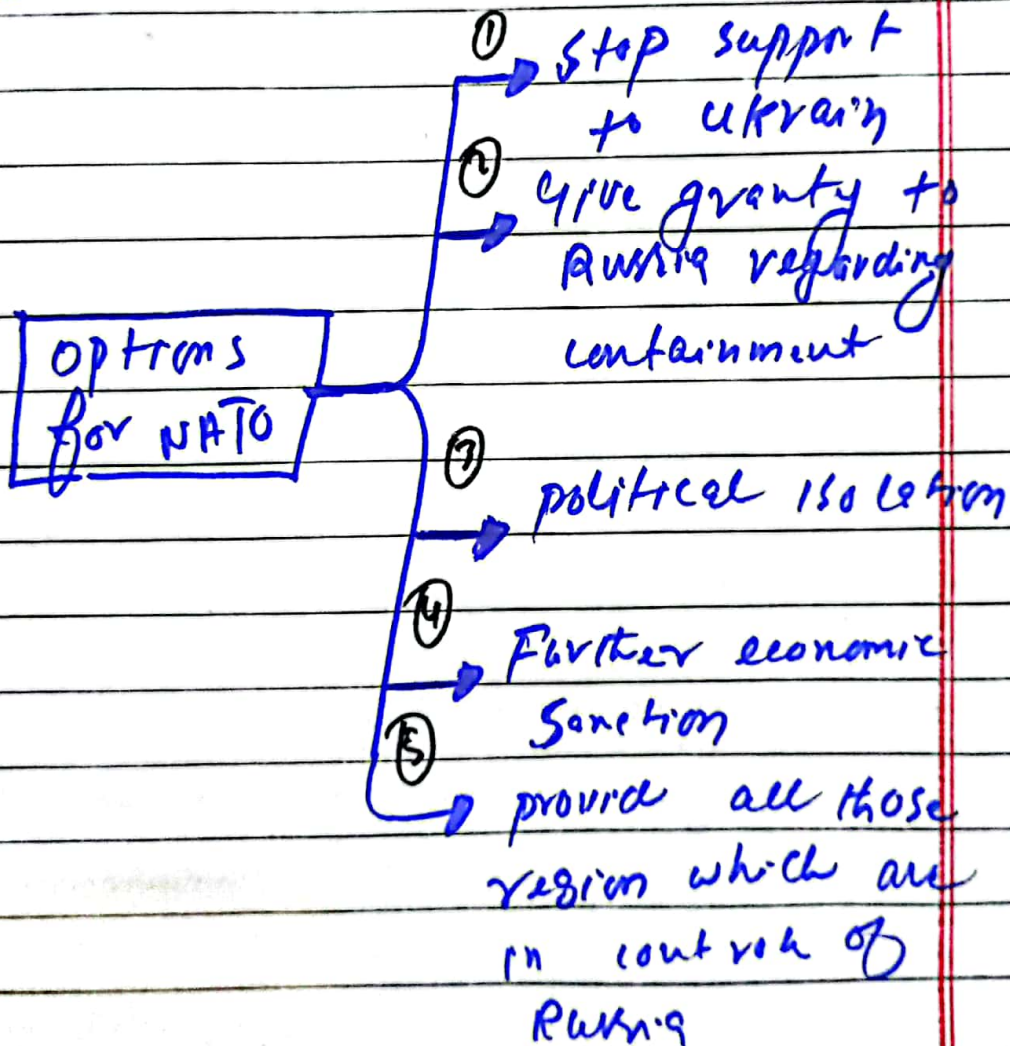 options
for NATO
①
stop support
to Ukrain
②
Give granty to
Russia regarding
containment
③
political isolation
④
Further economic
Sanction
⑤
provid all those
region which are
in control of
Russia